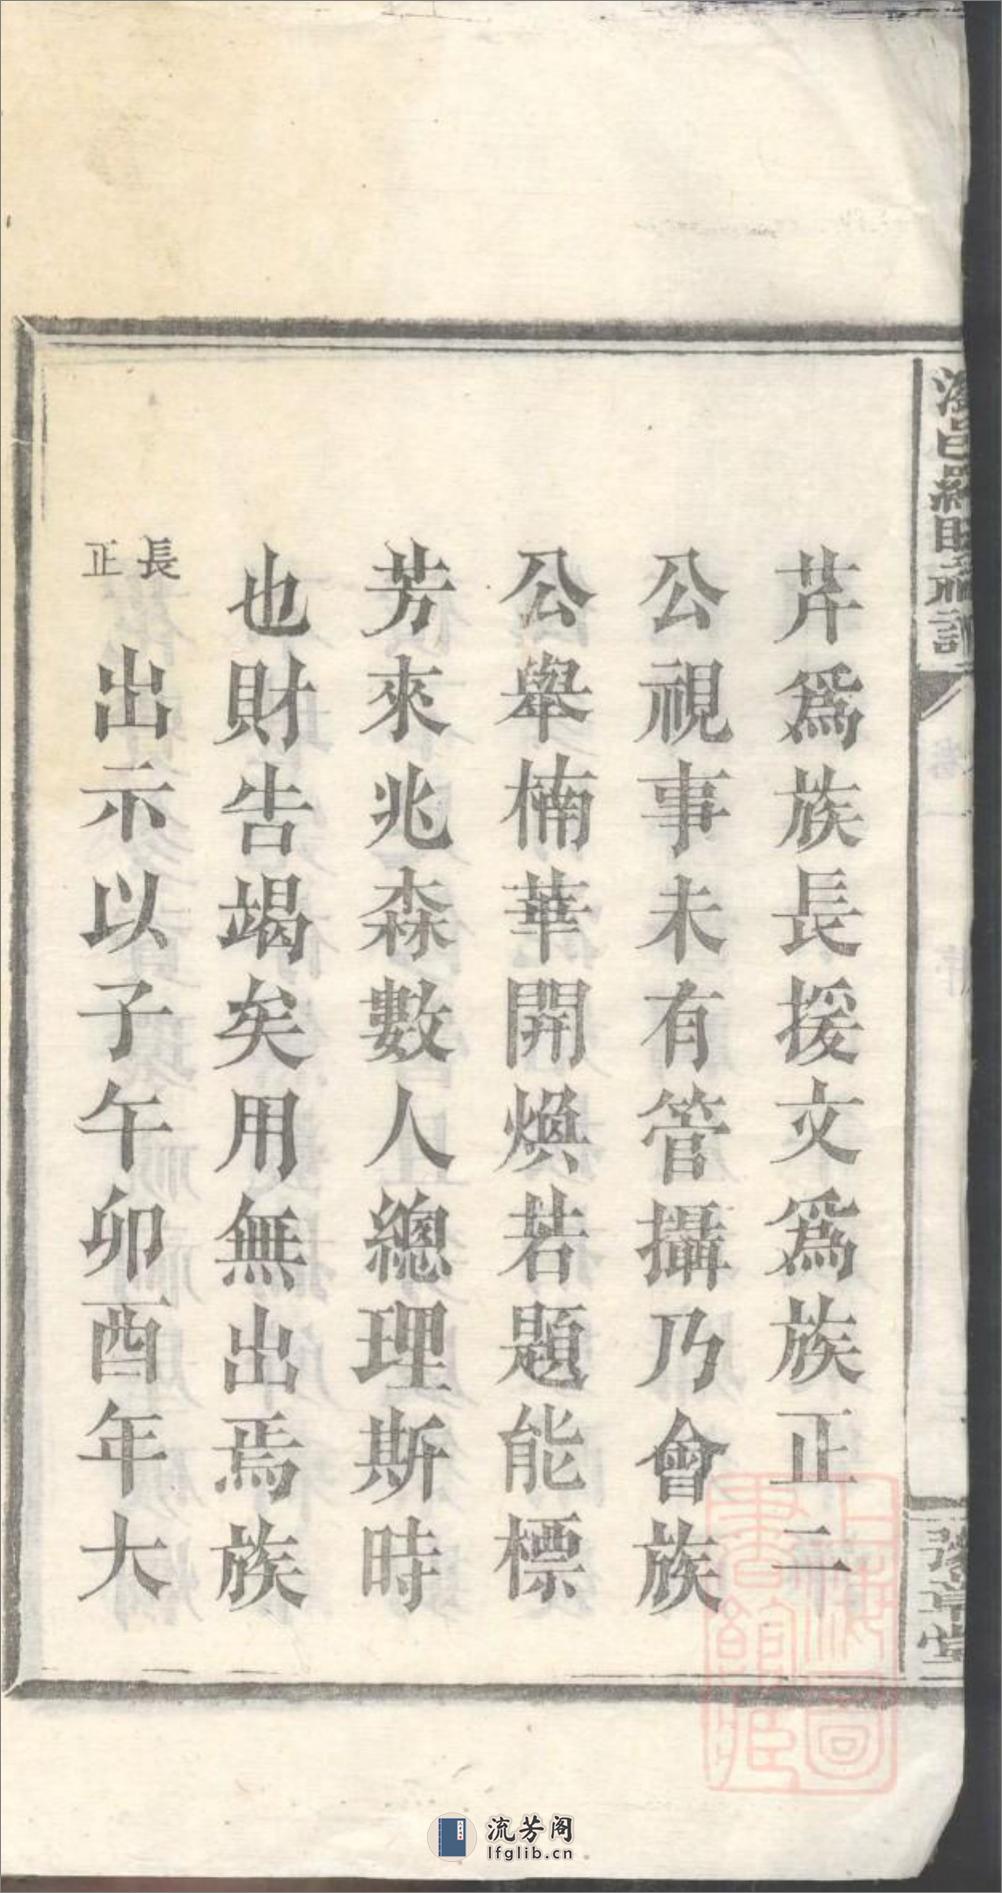 芹爲族長援文爲族正二
公視事未有管攝乃會族
公舉楠華開煥若題能標
芳來兆森數人總理斯時
也財告竭矣用無出焉族
長正出示以子午卯酉年大
豫章堂
上海圖書館藏
流芳阁
lfglib.cn